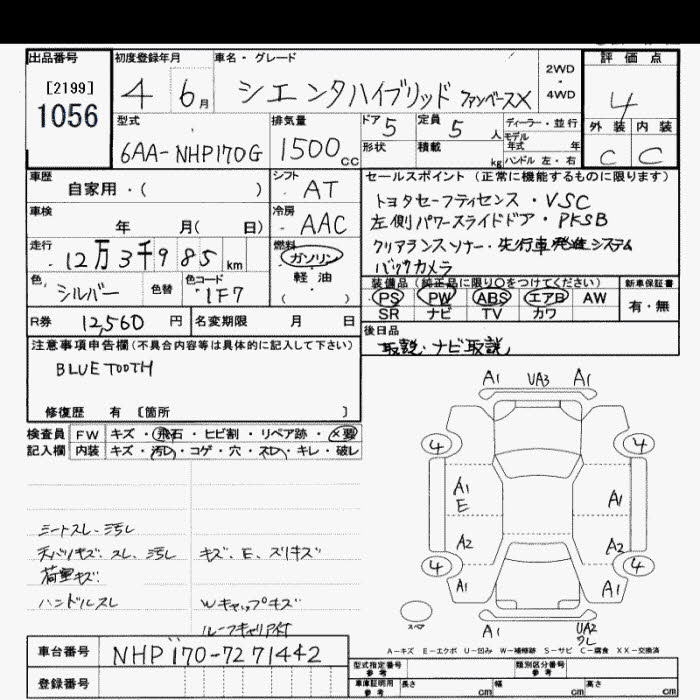 出品番号
[2199]
1056
初度登録年月
4 6月
車名・グレード
シエンタハイブリッド ファンベースX
2WD
・
4WD
評価点
4
外装 内装
C C
型式
6AA-NHP170G
排気量
1500cc
ドア 5
形状
定員 5人
積載 kg
ディーラー・並行
モデル
年式 年
ハンドル 左・右
車歴
自家用・( )
シフト
AT
車検
年 月( 日)
冷房
AAC
走行
12万3千985km
燃料
ガソリン
軽油
( )
色
シルバー
色替
色コード
1F7
セールスポイント(正常に機能するものに限ります)
トヨタセーフティセンス・VSC
左側パワースライドドア・PKSB
クリアランスソナー・先行車発進システム
バックカメラ
装備品(純正品に限り○をつけてください)
PS PW ABS エアB AW
SR ナビ TV カワ
新車保証書
有・無
R券 12,560円
名変期限 月 日
後日品
取説・ナビ取説
注意事項申告欄(不具合内容等は具体的に記入して下さい)
BLUETOOTH
修復歴 有 [箇所 ]
検査員
記入欄
FW キズ・飛石・ヒビ割・リペア跡・×要
内装 キズ・汚レ・コゲ・穴・スレ・キレ・破レ
シートスレ・汚レ
天バリキズ、スレ、汚レ
荷室キズ
ハンドルスレ
キズ、E、スリキズ
Wキャップキズ
ルーフキャリア付
A1 UA3 A1
4 4
A1
E
A1
A2 A2
4 4
A1 A1
スペア
A1 UA2
クレ
A-キズ E-エクボ U-凹み W-補修跡 S-サビ C-腐食 XX-交換済
車台番号
NHP170-7271442
登録番号
型式指定番号
参考
類別区分番号
参考
車庫証明用
参考
長さ cm 幅 cm 高さ cm